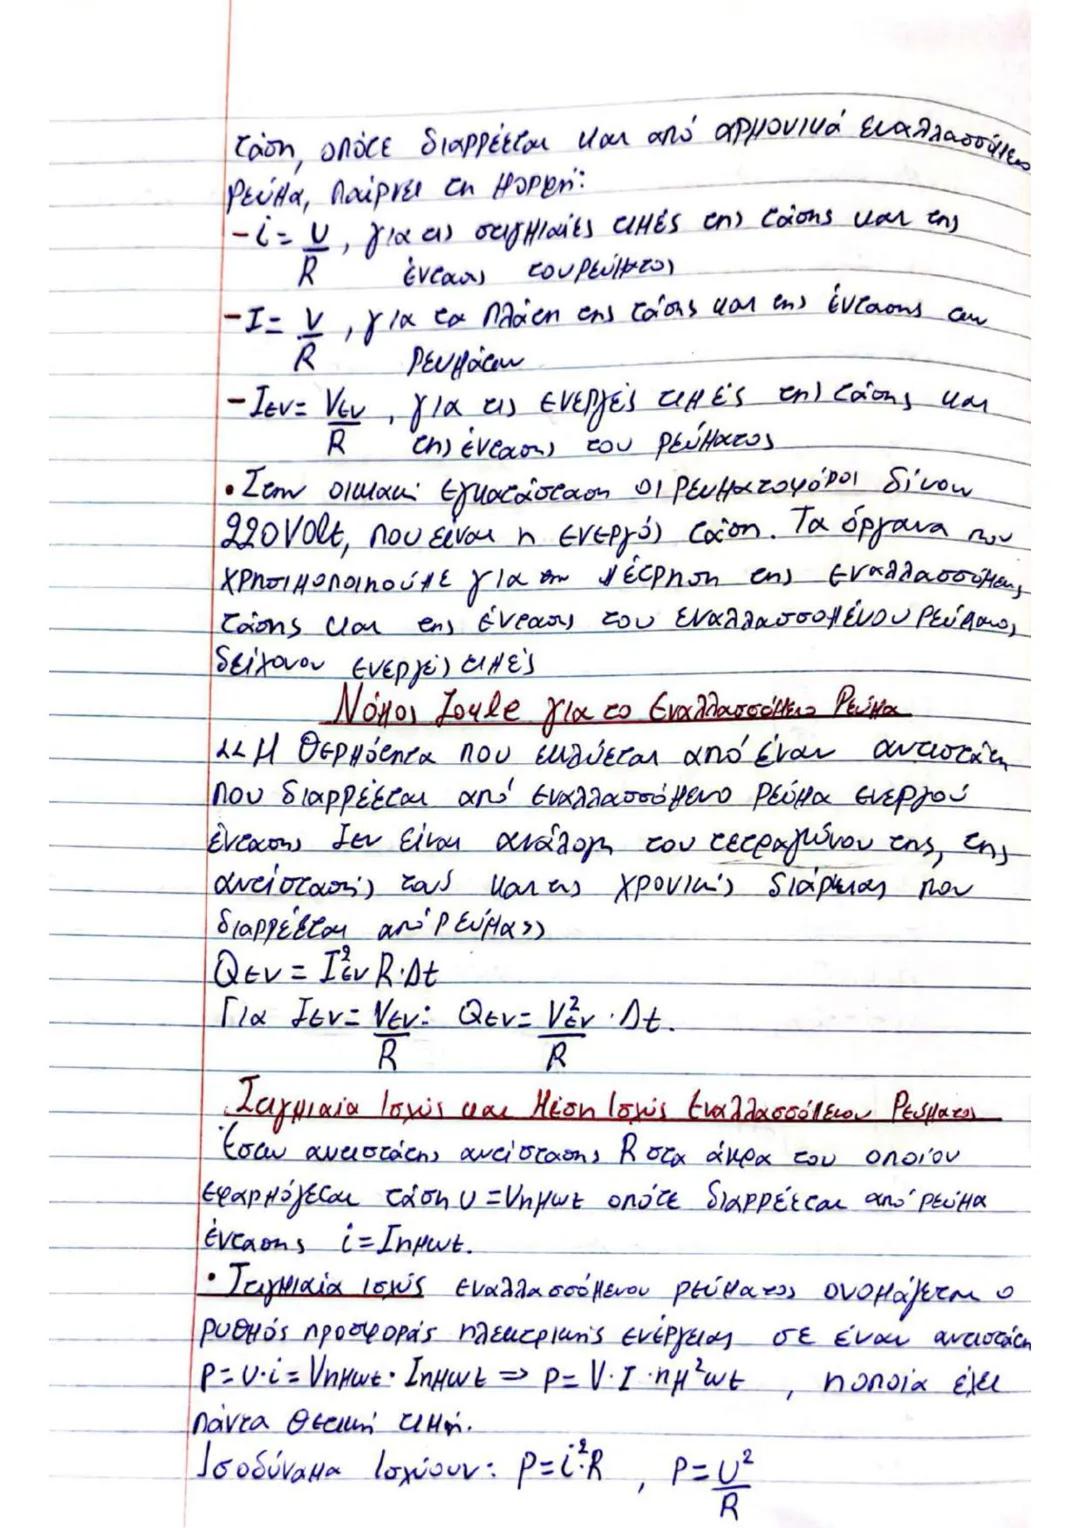 τάση, οπότε διαρρέεται και από αρμονικά εναλλασσόμενο
ρεύμα, παίρνει τη μορφή:
- i = υ/R, για τις στιγμιαίες τιμές της τάσης και της
έντασης του ρεύματος
- I = V/R, για τα πλάτη της τάσης και της έντασης των
ρευμάτων
- Iεν = Vεν/R, για τις ενεργές τιμές της τάσης και
της έντασης του ρεύματος
• Στην οικιακή εγκατάσταση οι ρευματοφόροι δίνουν
220 Volt, που είναι η ενεργός τάση. Τα όργανα που
χρησιμοποιούμε για την μέτρηση της εναλλασσόμενης
τάσης και της έντασης του εναλλασσομένου ρεύματος
δείχνουν ενεργές τιμές
Νόμος Joule για το Εναλλασσόμενο Ρεύμα
<<Η θερμότητα που εκλύεται από έναν αντιστάτη
που διαρρέεται από εναλλασσόμενο ρεύμα ενεργού
έντασης Iεν είναι ανάλογη του τετραγώνου της, της
αντίστασής του και της χρονικής διάρκειας που
διαρρέεται από ρεύμα>>
Qεν = I²εν R·Δt
Για Iεν = Vεν/R: Qεν = V²εν/R · Δt.
Στιγμιαία Ισχύς και Μέση Ισχύς Εναλλασσόμενου Ρεύματος
Έστω αντιστάτης αντίστασης R στα άκρα του οποίου
εφαρμόζεται τάση υ = Vημωt οπότε διαρρέεται από ρεύμα
έντασης i = Iημωt.
• Στιγμιαία ισχύς εναλλασσόμενου ρεύματος ονομάζεται ο
ρυθμός προσφοράς ηλεκτρικής ενέργειας σε έναν αντιστάτη
P = υ·i = Vημωt · Iημωt ⇒ P = V·I·ημ²ωt, η οποία έχει
πάντα θετική τιμή.
Ισοδύναμα Ισχύουν: P = i²·R, P = υ²/R